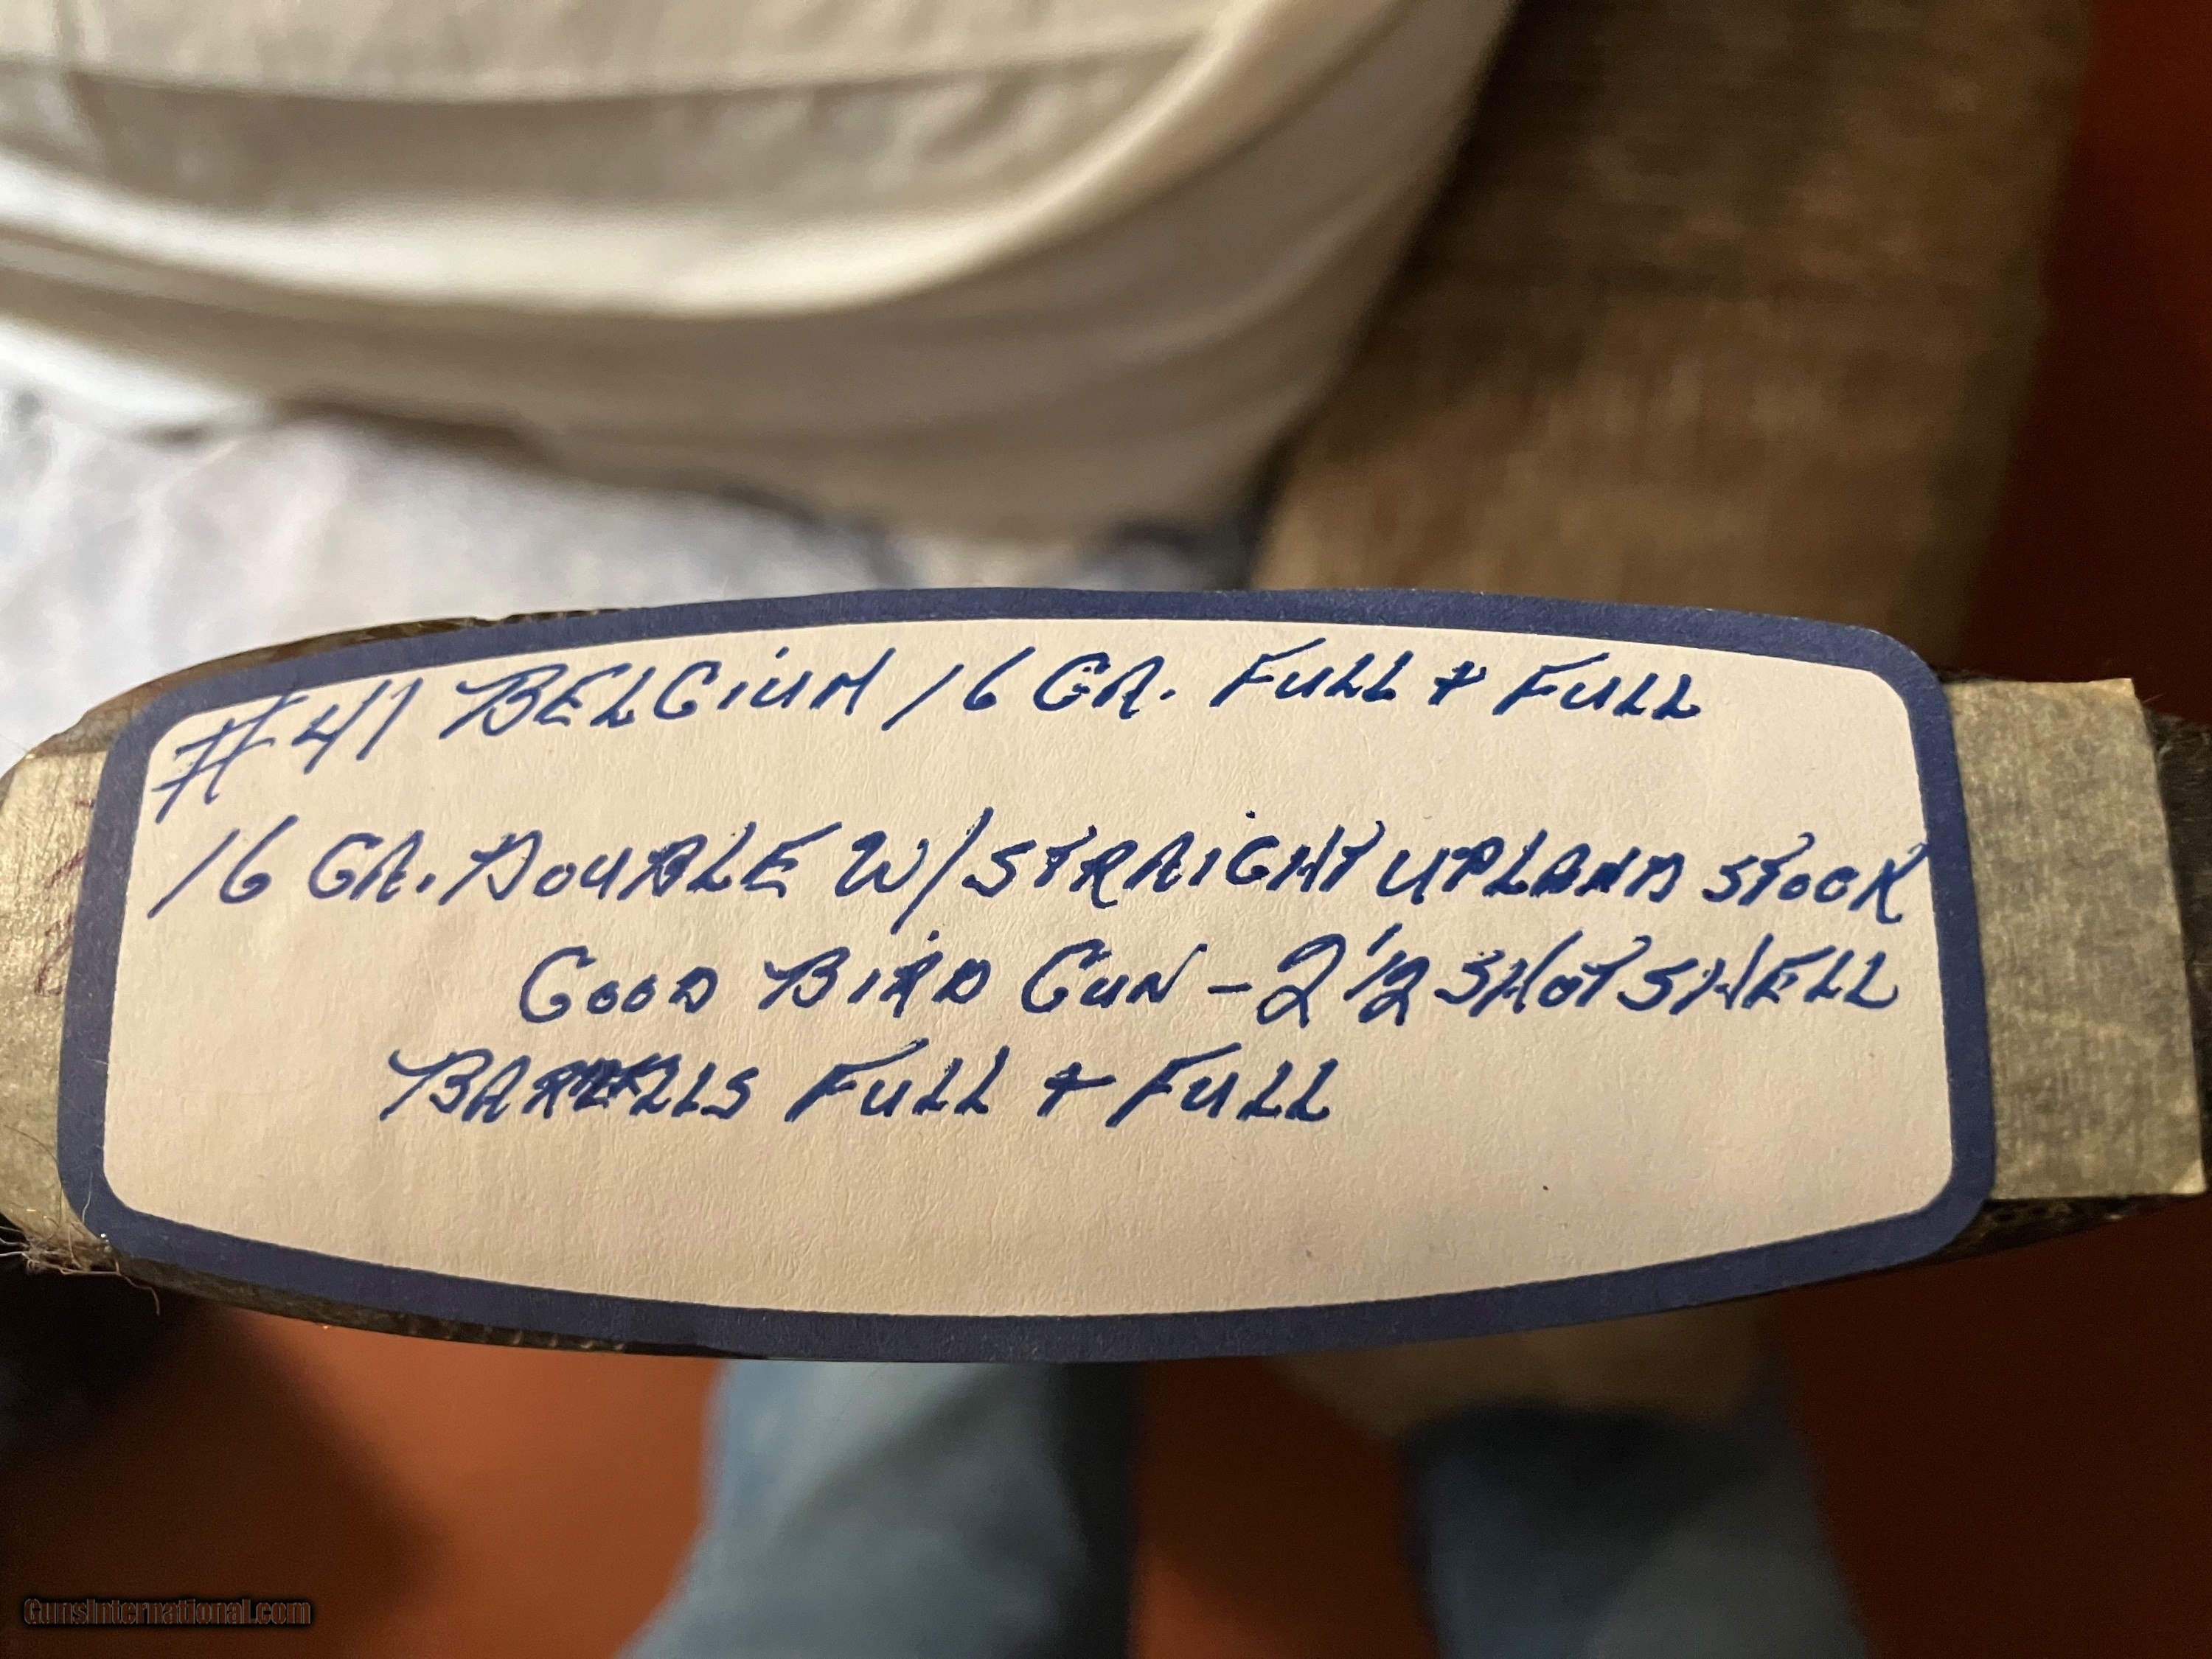 #41 BELGiUM 16 GA. FULL + FULL
16 GA. DOUBLE W/STRAIGHT UPLAND STOCK
GOOD BIRD GUN - 2 1/2 SHOTSHELL
BARRELLS FULL + FULL
GunsInternational.com